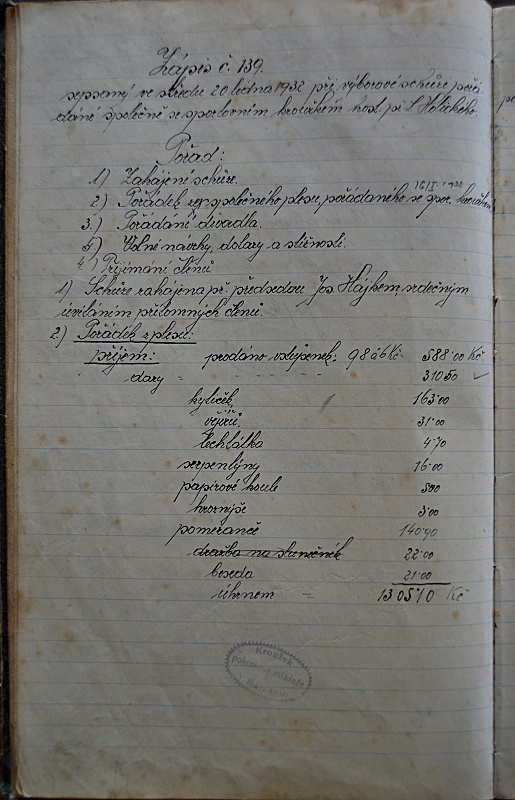 Zápis č. 139.
sepsaný ve středu 20 ledna 1932 při výborové schůzi pořá-
dáné společně se sportovním kroužkem host. p.
Pořad:
1) Zahájení schůze.
16/I. 1932
2) Pořádek z společného plesu, pořádaného se spor. kroužkem
3.) Pořádání divadla.
4) Volné návrhy, dotazy a stížnosti.
4.) Přijímání členů
1) Schůze zahájena př. předsedou Jos. Hájkem, srdečným
uvítáním přítomných členů.
2.) Pořádek z plesu:
příjem: prodáno vstupenek: 98 á 6 Kč - 588·00 Kč
dary = - - - - 310 50
kytiček 163·00
vějířů 31·00
lechtátka 4·70
serpentýny 16·00
papírové koule 5·00
3·00
pomeranče 140·90
dražba na slunečník 22·00
beseda 21·00
úhrnem = 1305·10 Kč
Kroužek
pokrokové mládeže